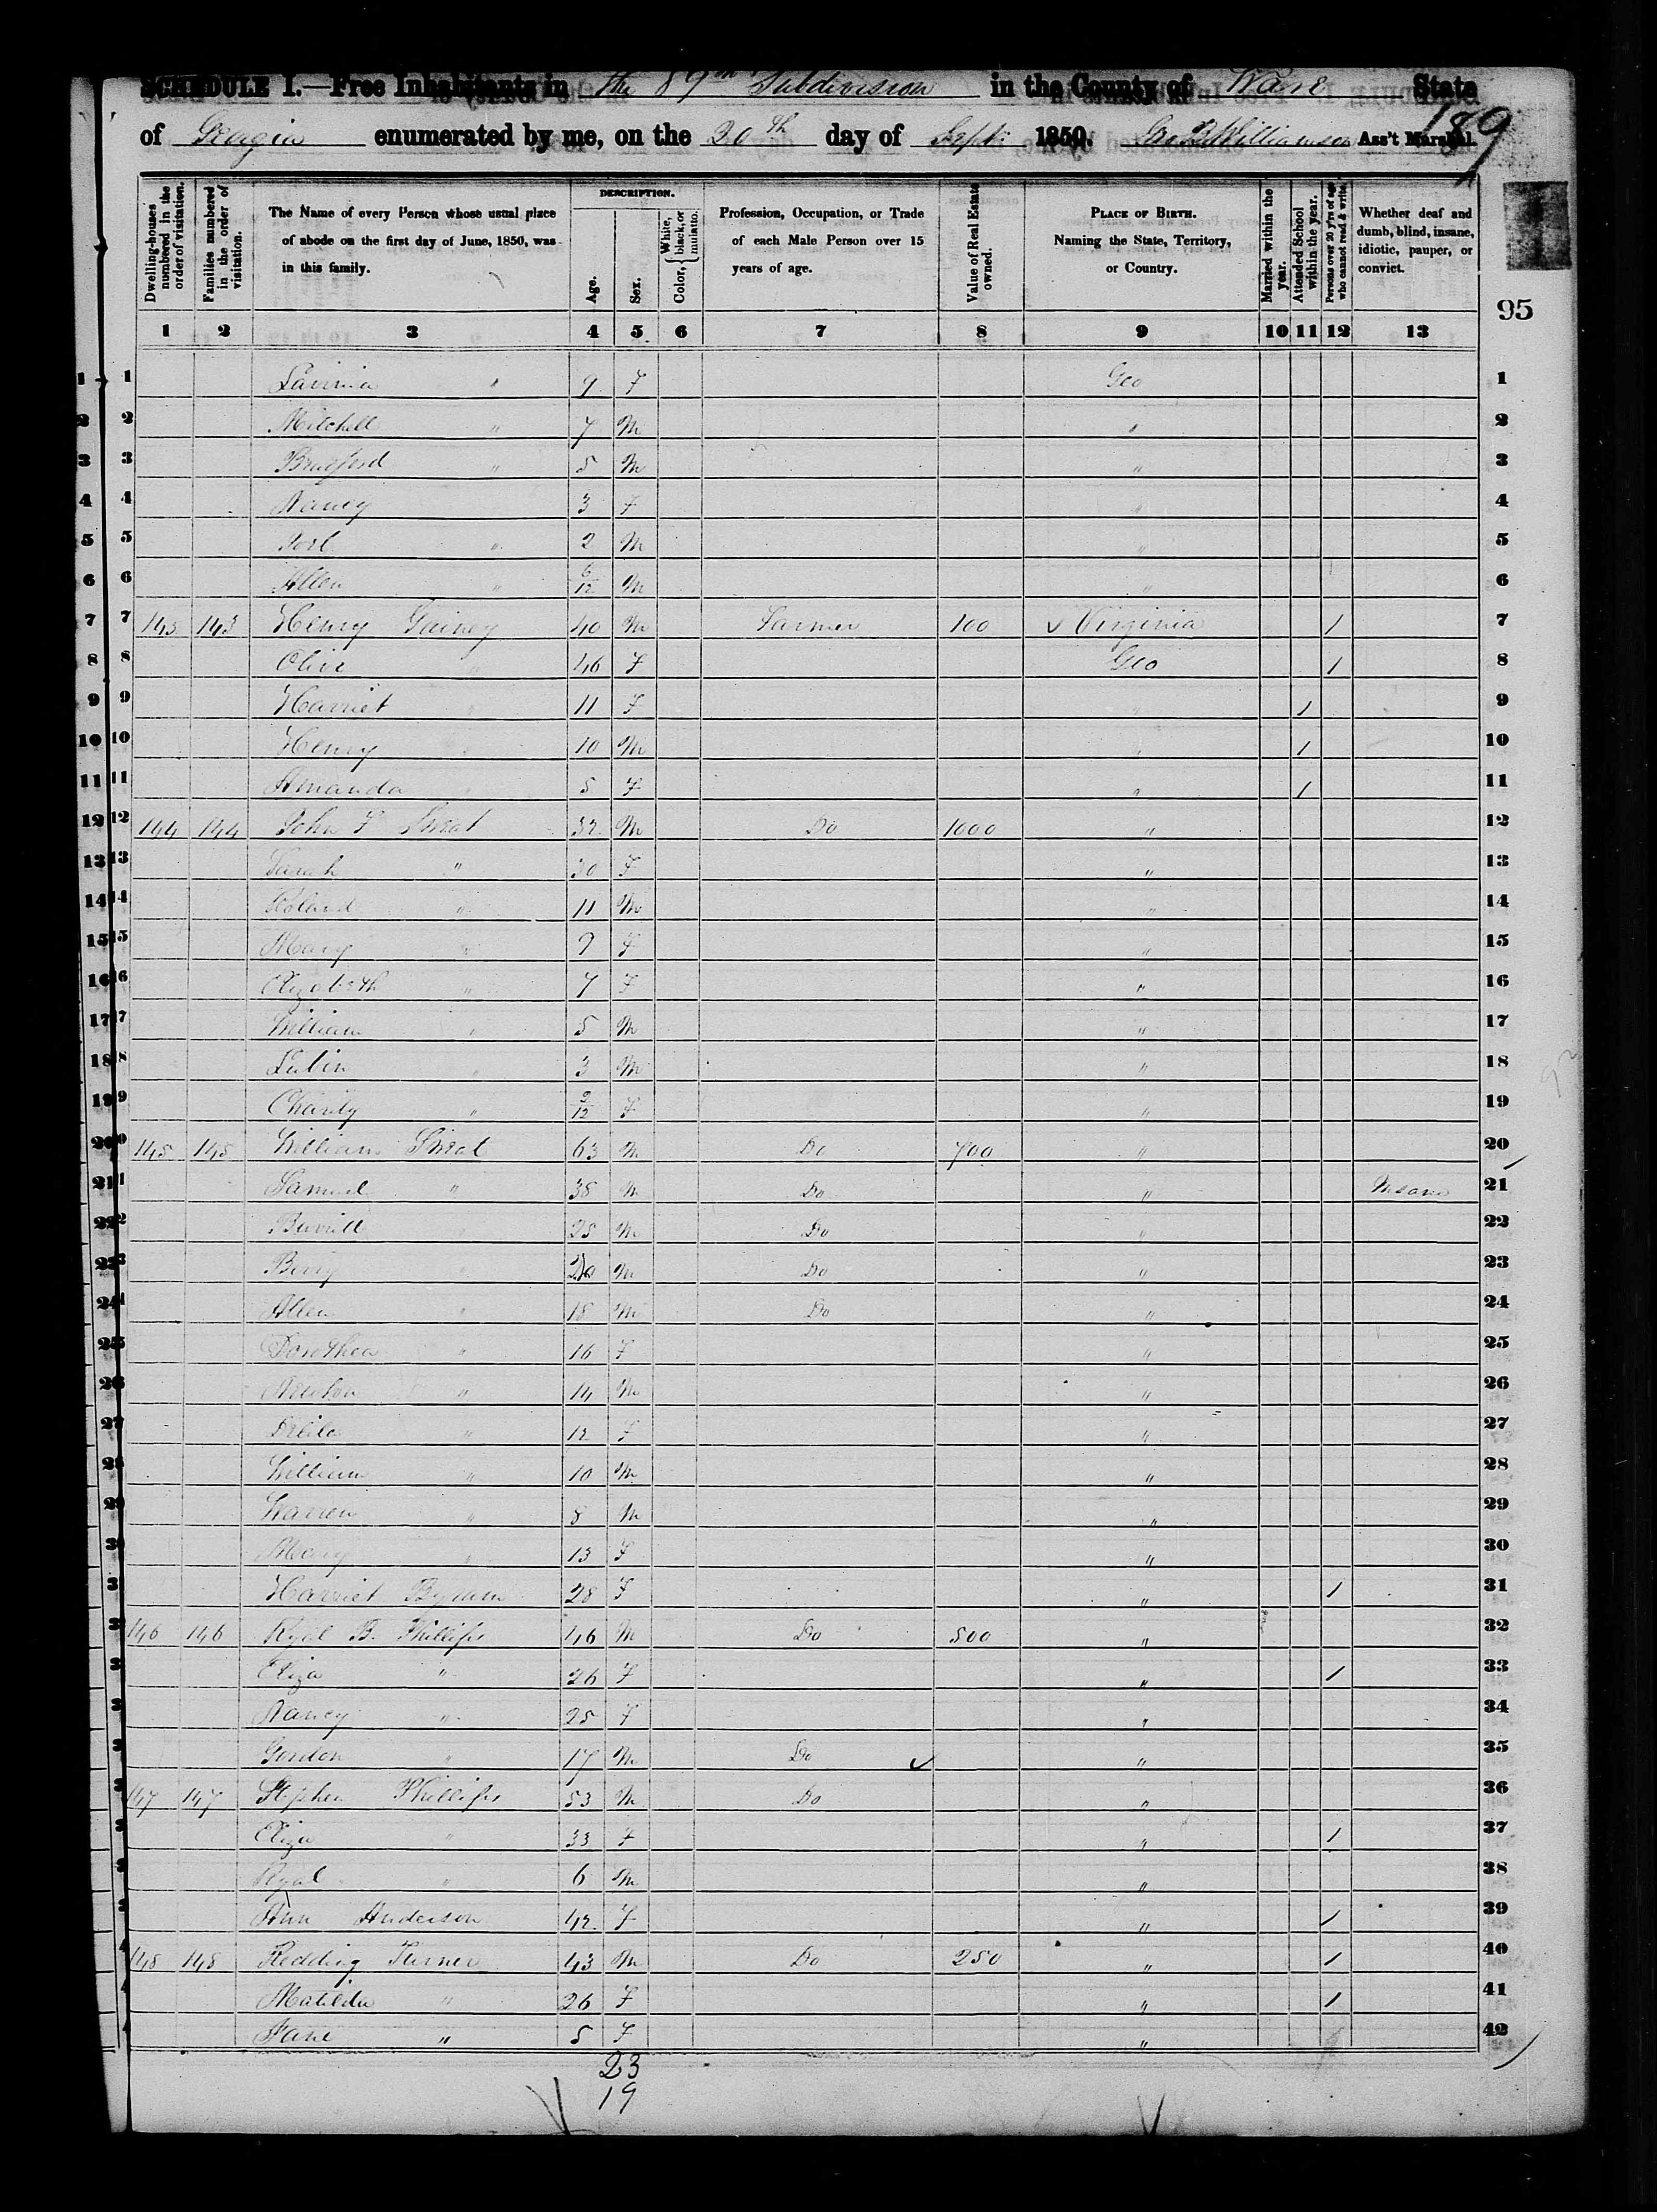 SCHEDULE I.—Free Inhabitants in the 89th Subdivision in the County of Ware State
of Georgia enumerated by me, on the 20th day of Sept: 1850. Geo B Williamson Ass't Marshal.
189
95
Dwelling-houses numbered in the order of visitation.
Families numbered in the order of visitation.
The Name of every Person whose usual place of abode on the first day of June, 1850, was in this family.
DESCRIPTION.
Age.
Sex.
Color, { White, black, or mulatto.
Profession, Occupation, or Trade of each Male Person over 15 years of age.
Value of Real Estate owned.
PLACE OF BIRTH. Naming the State, Territory, or Country.
Married within the year.
Attended School within the year.
Persons over 20 y'rs of age who cannot read & write.
Whether deaf and dumb, blind, insane, idiotic, pauper, or convict.
1 2 3 4 5 6 7 8 9 10 11 12 13
1 Lavinia " 9 F Geo 1
2 Mitchell " 7 M " 2
3 " 5 M " 3
4 Nancy 3 F " 4
5 " 2 M " 5
6 Allen " 6/12 M " 6
7 143 143 Henry Gainey 40 M Farmer 100 ✓ Virginia / 7
8 Olive " 46 F Geo / 8
9 Harriet " 11 F " / 9
10 Henry " 10 M " / 10
11 Amanda " 5 F " / 11
12 144 144 John F Sweat 32 M Do 1000 " 12
13 Sarah " 30 F " 13
14 Roland " 11 M " 14
15 Mary " 9 F " 15
16 Elizabeth " 7 F " 16
17 William " 5 M " 17
18 " 3 M " 18
19 Charity " 2/12 F " 19
20 145 145 William Sweat 63 M Do 700 " 20
21 Samuel " 38 M Do " Insane 21
22 Burrill " 25 M Do " 22
23 Berry " 20 M Do " 23
24 Allen " 18 M Do " 24
25 Dorothea " 16 F " 25
26 Newton " 14 M " 26
27 Delila " 12 F " 27
28 William " 10 M " 28
29 Warren " 8 M " 29
30 Mary " 13 F " 30
Harriet 28 F " / 31
146 146 Ryal B. Phillips 46 M Do 500 " 32
Eliza " 26 F " / 33
Nancy " 25 F " 34
Gordon " 17 M Do ✓ " 35
147 147 Stephen Phillips 53 M Do " 36
Eliza " 33 F " / 37
Ryal " 6 M " 38
Ann Anderson 42 F " / 39
148 148 Redding Turner 43 M Do 250 " / 40
Matilda " 26 F " / 41
Jane " 5 F " 42
23
19